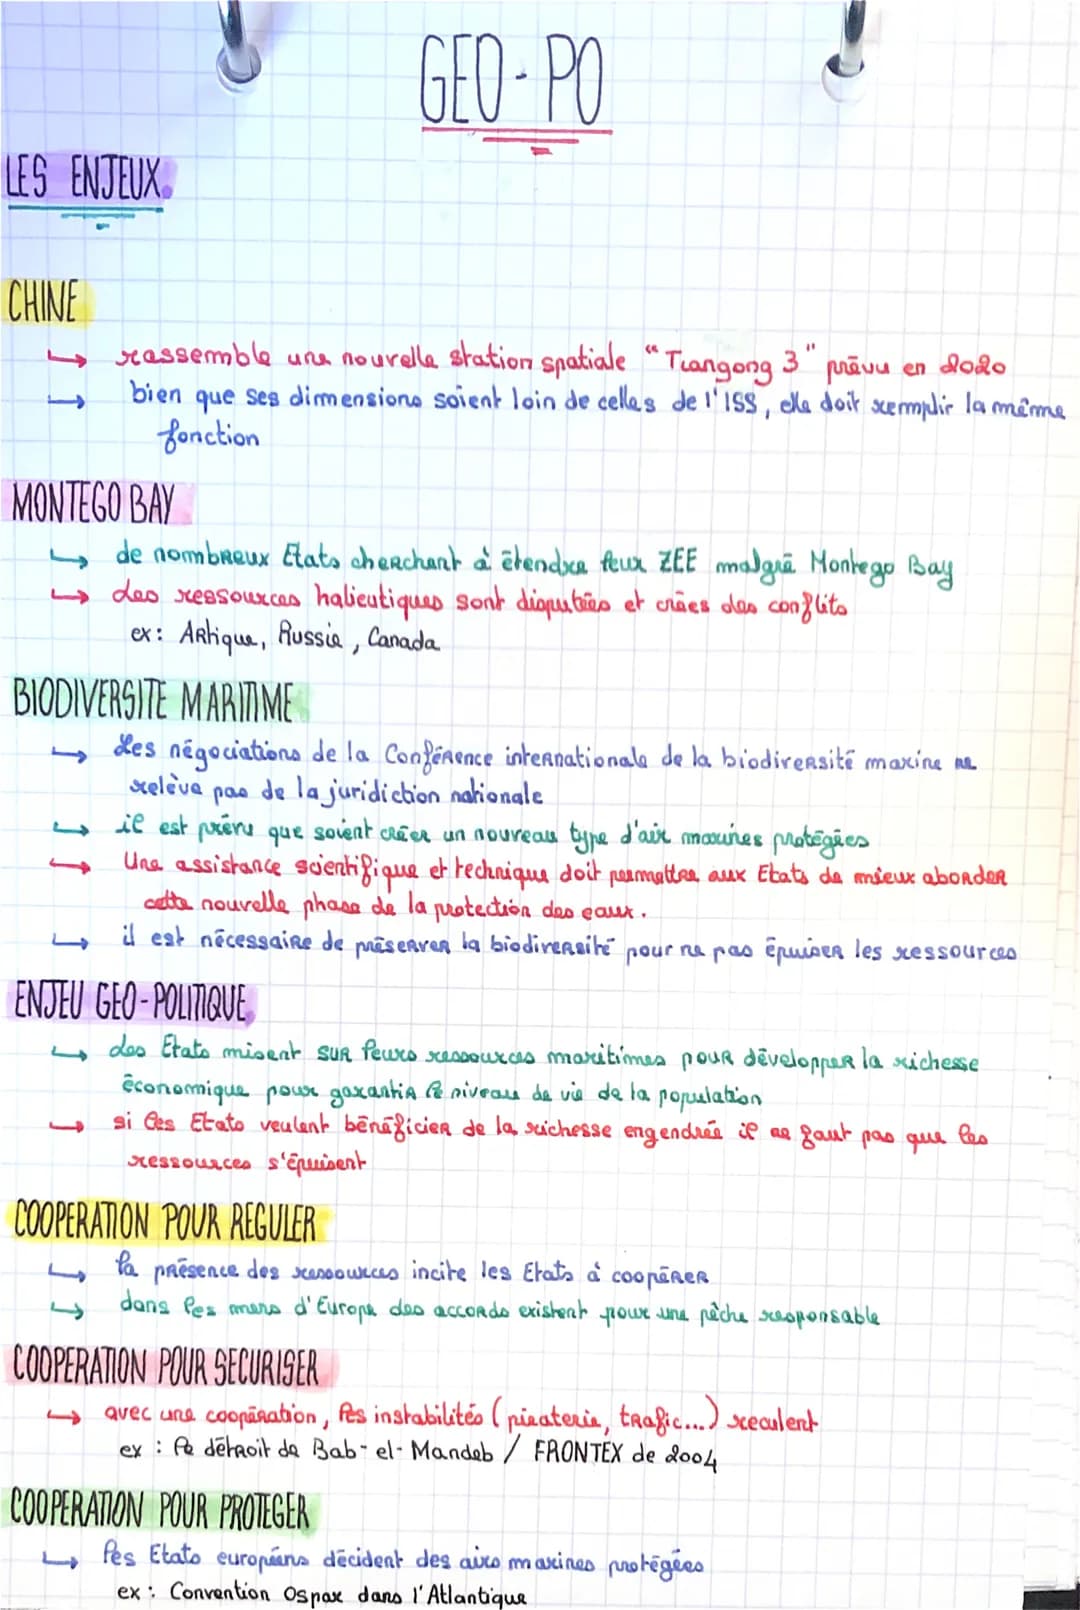 GEO-PO
LES ENJEUX.
CHINE
↳ rassemble une nouvelle station spatiale "Tiangong 3" prévu en 2020
↳ bien que ses dimensions soient loin de celles de l'ISS, elle doit remplir la même
fonction
MONTEGO BAY
↳ de nombreux Etats cherchant à étendre leur ZEE malgré Montego Bay
↳ des ressources halieutiques sont disputées et crées des conflits
ex : ARtique, Russie, Canada
BIODIVERSITE MARITIME
↳ Les négociations de la Conférence internationale de la biodiversité marine ne
relève pas de la juridiction nationale
↳ il est prévu que soient créer un nouveau type d'air marines protégées
↳ Une assistance scientifique et technique doit permettre aux Etats de mieux aborder
cette nouvelle phase de la protection des eaux.
↳ il est nécessaire de préserver la biodiversité pour ne pas épuiser les ressources
ENJEU GEO-POLITIQUE
↳ des Etats misent sur leurs ressources maritimes pour développer la richesse
économique pour garantir le niveau de vie de la population
↳ si les Etats veulent bénéficier de la richesse engendrée il ne faut pas que les
ressources s'épuisent
COOPERATION POUR REGULER
↳ la présence des ressources incite les Etats à coopérer
↳ dans les mers d'Europe des accords existent pour une pêche responsable
COOPERATION POUR SECURISER
↳ avec une coopération, les instabilités (piraterie, trafic...) reculent
ex : le détroit de Bab-el-Mandeb / FRONTEX de 2004
COOPERATION POUR PROTEGER
↳ les Etats européens décident des airs marines protégées
ex : Convention Ospar dans l'Atlantique